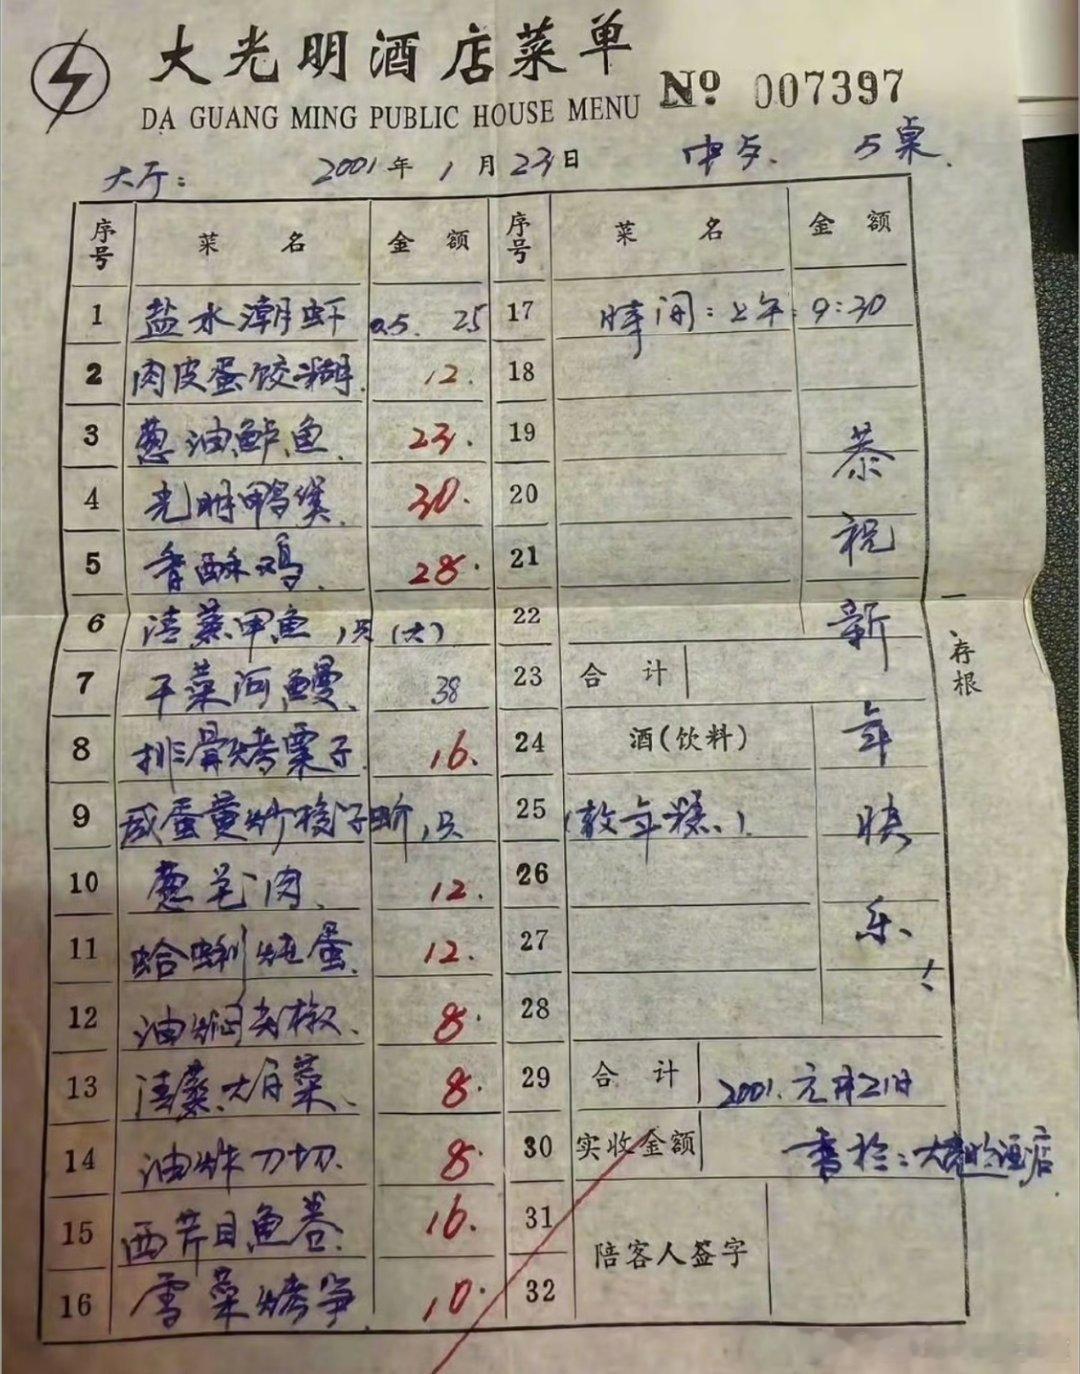 大光明酒店菜单
DA GUANG MING PUBLIC HOUSE MENU
Nº 007397
大厅: 2001年1月23日 中午. 5桌.
序号 菜名 金额 序号 菜名 金额
1 盐水潮虾 0.5. 25 17 时间:上午:9:30
2 肉皮蛋饺糊. 12. 18
3 葱油鲈鱼. 23. 19
4 光明鸭煲. 30. 20
5 香酥鸡. 28. 21
6 清蒸甲鱼,1只(大) 22
7 干菜河鳗. 38 23 合计
8 排骨烤栗子. 16. 24 酒(饮料)
9 咸蛋黄炒梭子蟹,1只 25 (敬年糕.)
10 葱 肉. 12. 26
11 蛤蜊炖蛋. 12. 27
12 油焖尖椒. 8. 28
13 清蒸大有菜. 8. 29 合计 2001.元月21日
14 油炸刀切. 8. 30 实收金额
15 西芹目鱼卷. 16. 31 陪客人签字
16 雪菜烤笋 10. 32
恭祝新年快乐!
一、存根